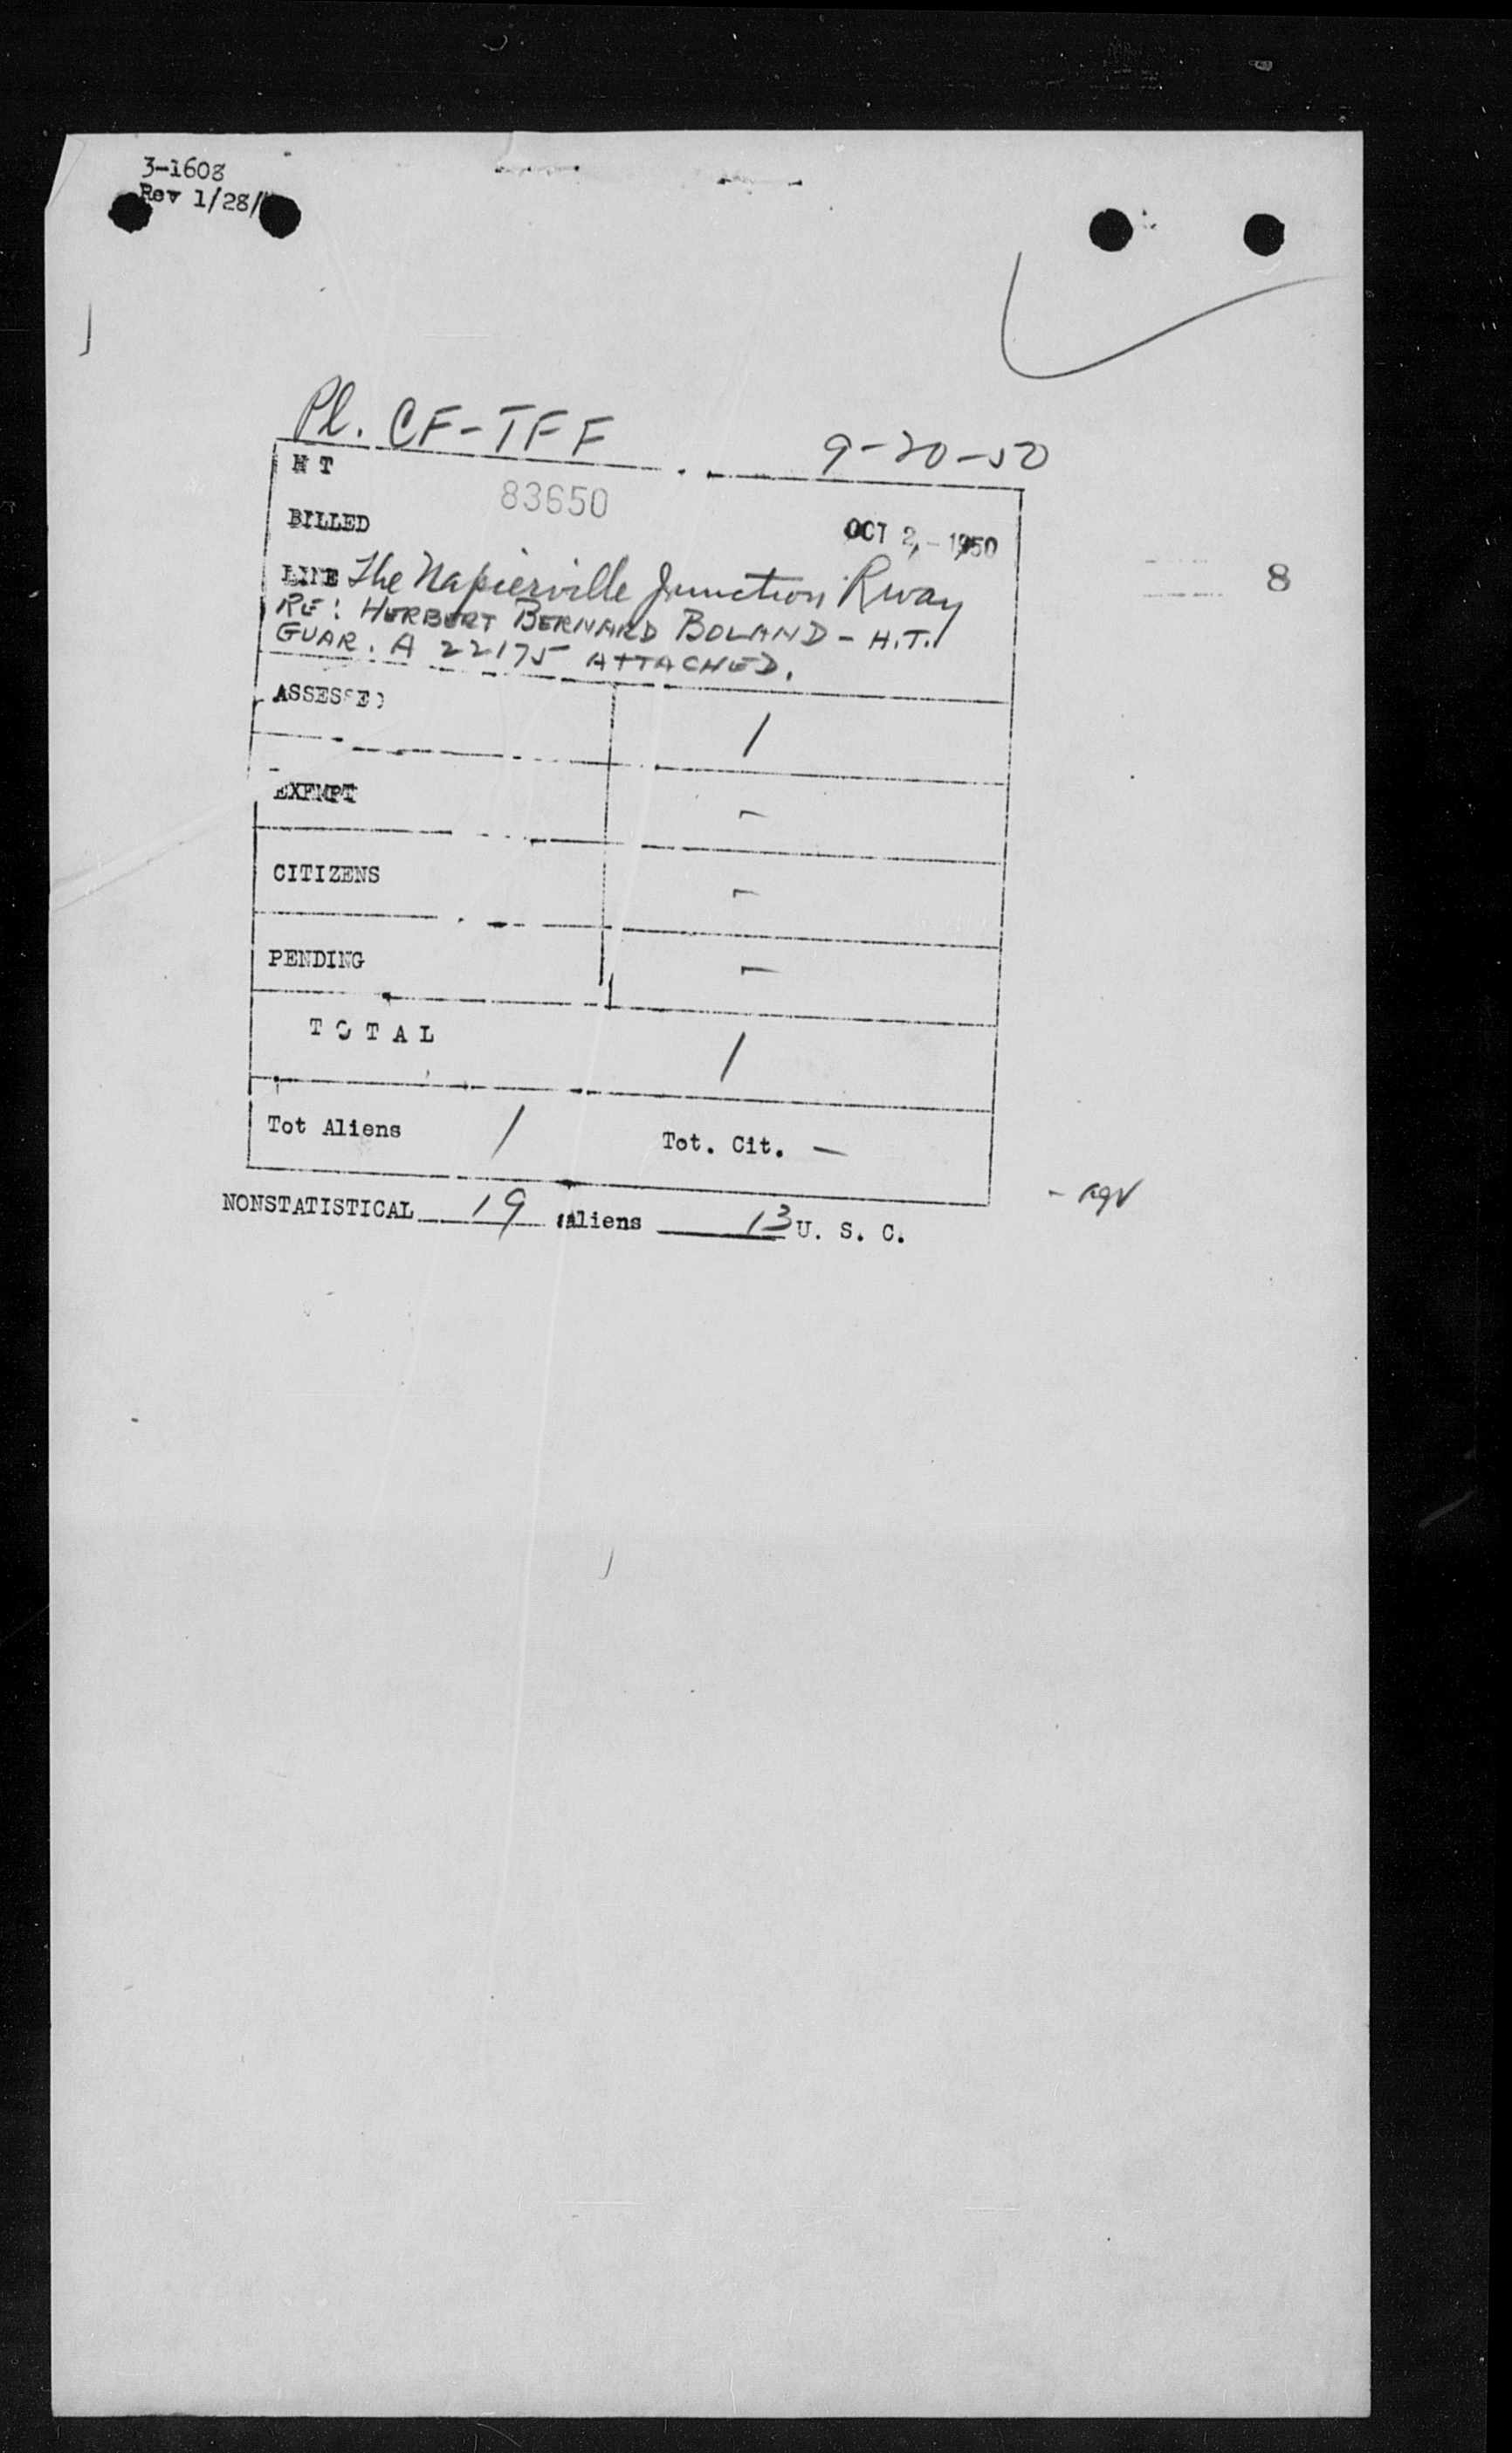 3-1608
Rev 1/28/
Pl. CF-TFF 9-20-50
H T
83650
BILLED OCT 2, - 1950
8
LINE The Napierville Junction Rway
RE: HERBERT BERNARD BOLAND - H.T.
GUAR. A 22175 ATTACHED.
ASSESSED 1
EXEMPT -
CITIZENS -
PENDING -
T O T A L 1
Tot Aliens 1 Tot. Cit. -
NONSTATISTICAL 19 aliens 13 U. S. C.